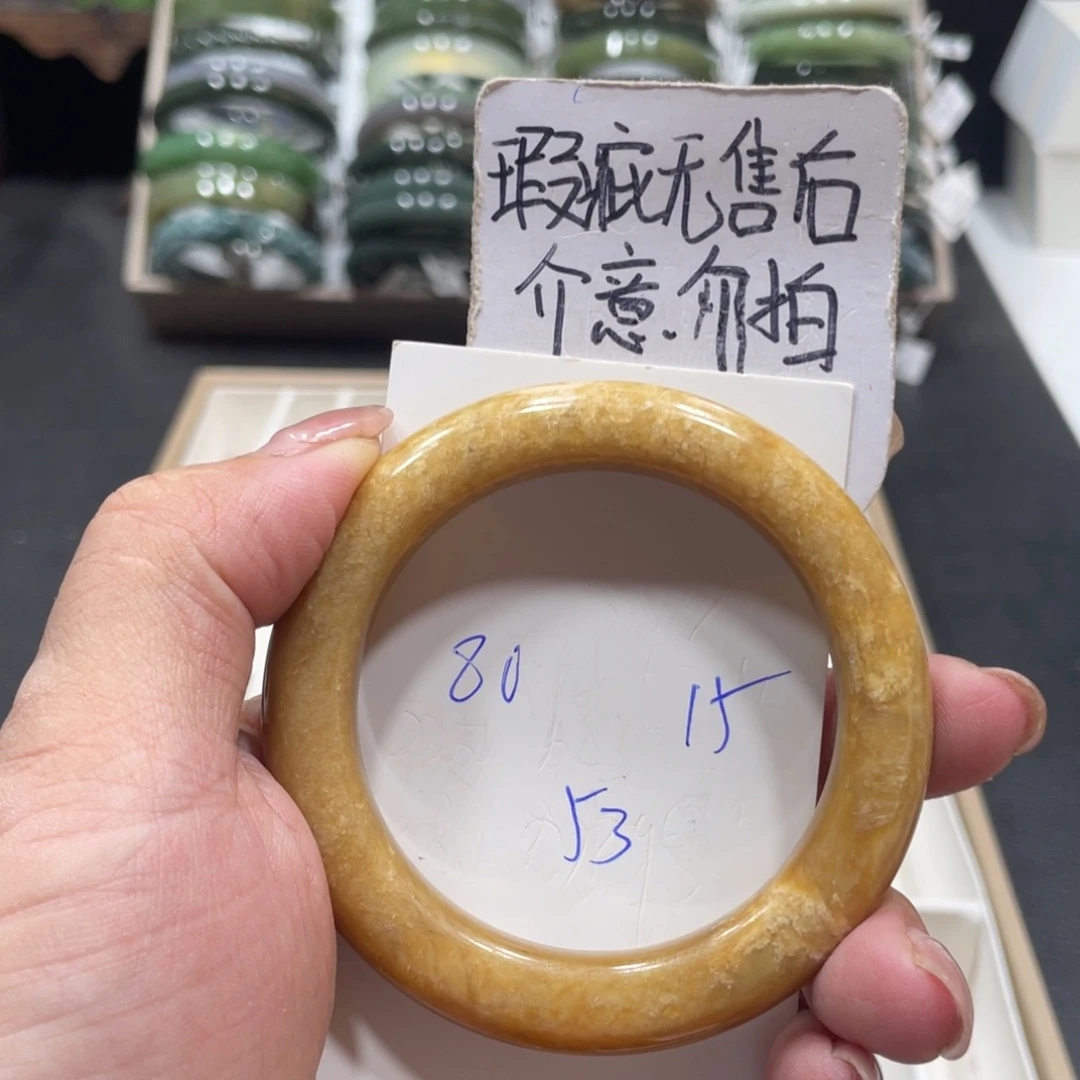 瑕疵无售后
介意.介拍
80
15
53